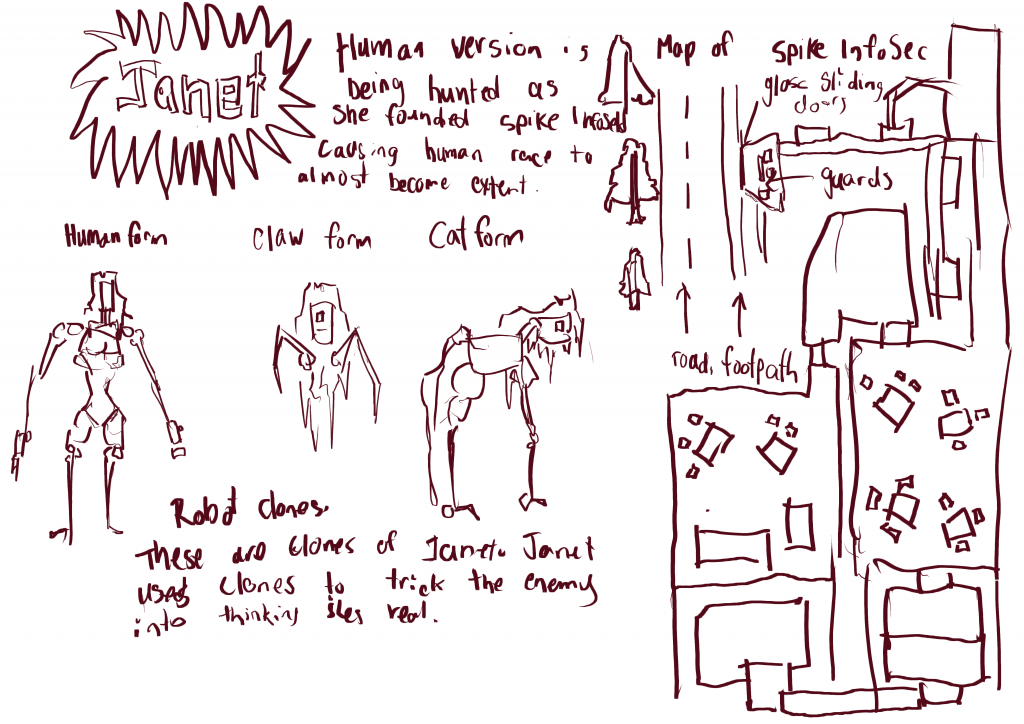 Janet
Human version is
being hunted as
she founded spike InfoSec
causing human race to
almost become extent.
Human form
Claw form
Cat form
Robot clones.
These are clones of Janet. Janet
used clones to trick the enemy
into thinking shes real.
Map of spike InfoSec
glass sliding
doors
guards
road, footpath